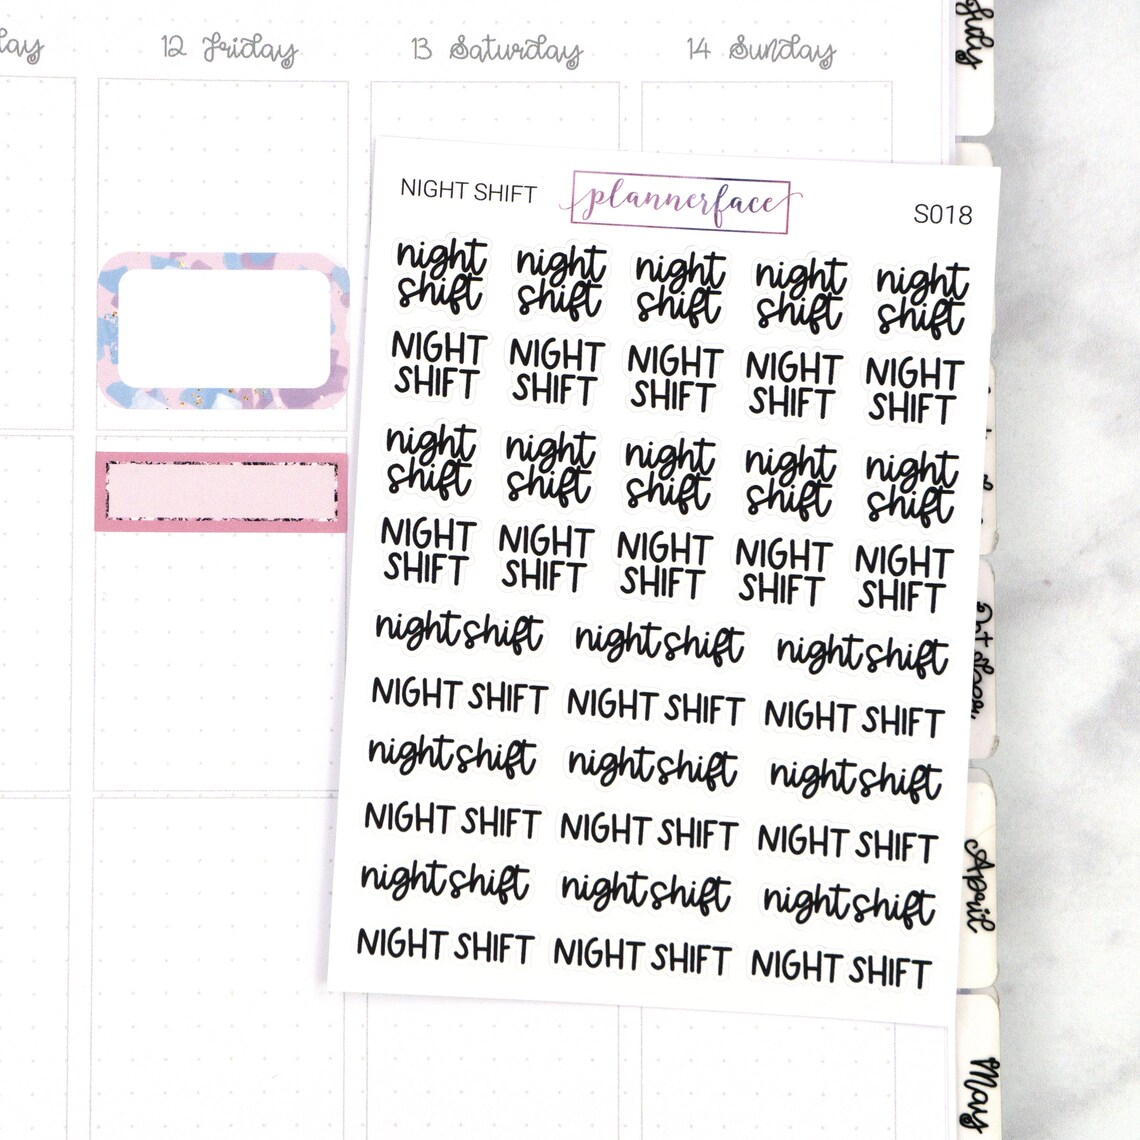 12 Friday 13 Saturday 14 Sunday
NIGHT SHIFT plannerface S018
night night night night night
shift shift shift shift shift
NIGHT NIGHT NIGHT NIGHT NIGHT
SHIFT SHIFT SHIFT SHIFT SHIFT
night night night night night
shift shift shift shift shift
NIGHT NIGHT NIGHT NIGHT NIGHT
SHIFT SHIFT SHIFT SHIFT SHIFT
night shift night shift night shift
NIGHT SHIFT NIGHT SHIFT NIGHT SHIFT
night shift night shift night shift
NIGHT SHIFT NIGHT SHIFT NIGHT SHIFT
night shift night shift night shift
NIGHT SHIFT NIGHT SHIFT NIGHT SHIFT
April
May